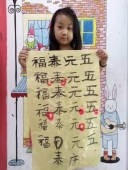 五五五五五五
元元元元元
泰泰泰泰泰泰泰
福福福福福福